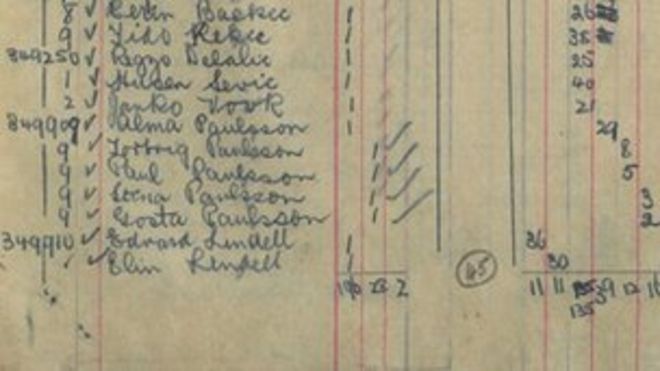 8 ✓ 1 26
9 ✓ Tido Kekic 1 35
349250 ✓ Redjo Delalic 1 25
1 ✓ Husen Sevic 1 40
2 ✓ Janko Vovk 1 21
349909 ✓ Alma Paulsson 1 29
9 ✓ Torborg Paulsson 1 8
9 ✓ Paul Paulsson 1 5
9 ✓ Paulsson 1 3
9 ✓ Gosta Paulsson 1 2
349910 ✓ Edvard Lindell 1 36
✓ Elin Lindell 1 30
2 45 11 11 12
135